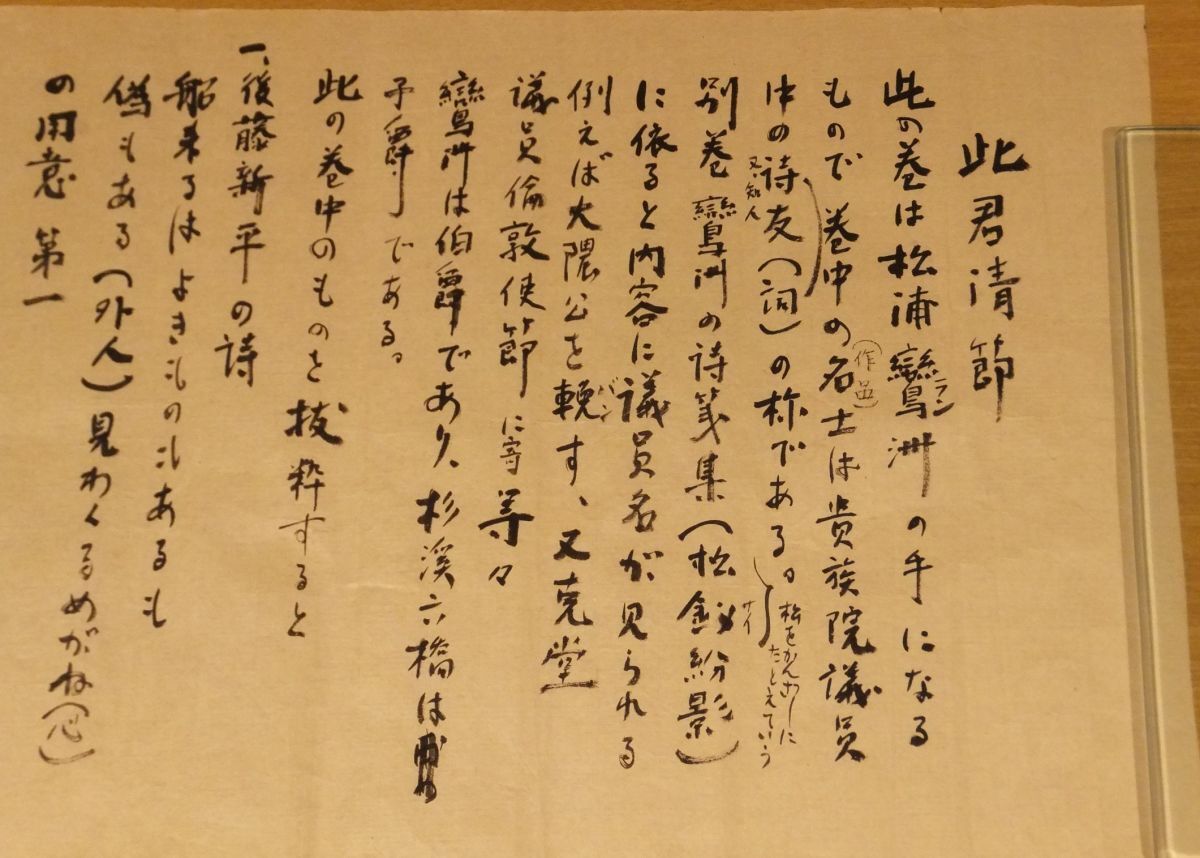 此君清節
此の巻は松浦鸞洲の手になる
ラン
もので巻中の名士は貴族院議員
(作品)
中の詩友(詞)の称である。
又知人
松をかんざしに
たとえていう
別巻 鸞洲の詩箋集(松釵紛影)
サイ
に依ると内容に議員名が見られる
例えば大隈公を輓す、又克堂
バン
議員倫敦使節に寄 等々
鸞洲は伯爵であり、杉溪六橋は
子爵である。
此の巻中のものを抜粋すると
一、後藤新平の詩
船来るはよきものもあるも
偽もある(外人)見わくるめがね(心)
の用意 第一